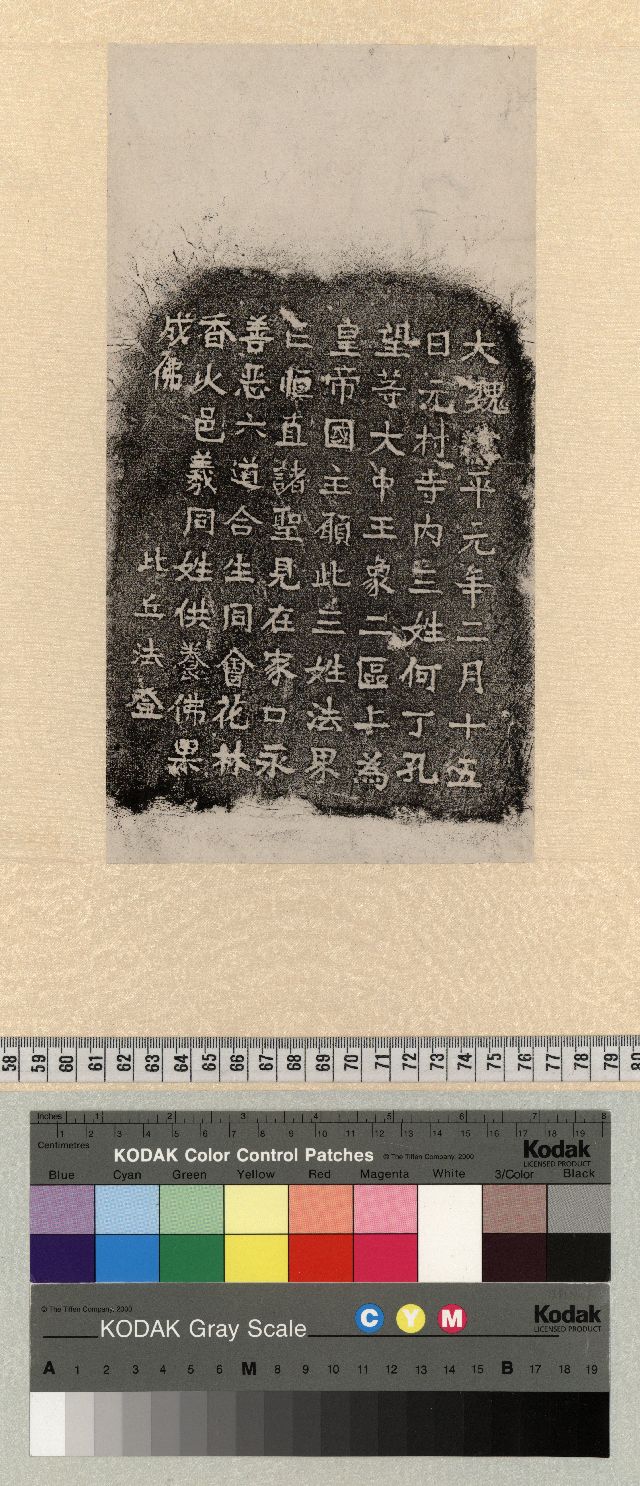 大魏平元年二月十五
日元村寺内三姓何丁孔
望等大中王象二區上為
皇帝國主願此三姓法果
亡恒直諸聖見在家口永
善惡六道合生同會花林
香火邑義同姓供養佛果
成佛 比丘法登
58 59 60 61 62 63 64 65 66 67 68 69 70 71 72 73 74 75 76 77 78 79 80
Inches 1 2 3 4 5 6 7 8
Centimetres 1 2 3 4 5 6 7 8 9 10 11 12 13 14 15 16 17 18 19
KODAK Color Control Patches © The Tiffen Company, 2000 Kodak
LICENSED PRODUCT
Blue Cyan Green Yellow Red Magenta White 3/Color Black
© The Tiffen Company, 2000
KODAK Gray Scale C Y M Kodak
LICENSED PRODUCT
A 1 2 3 4 5 6 M 8 9 10 11 12 13 14 15 B 17 18 19